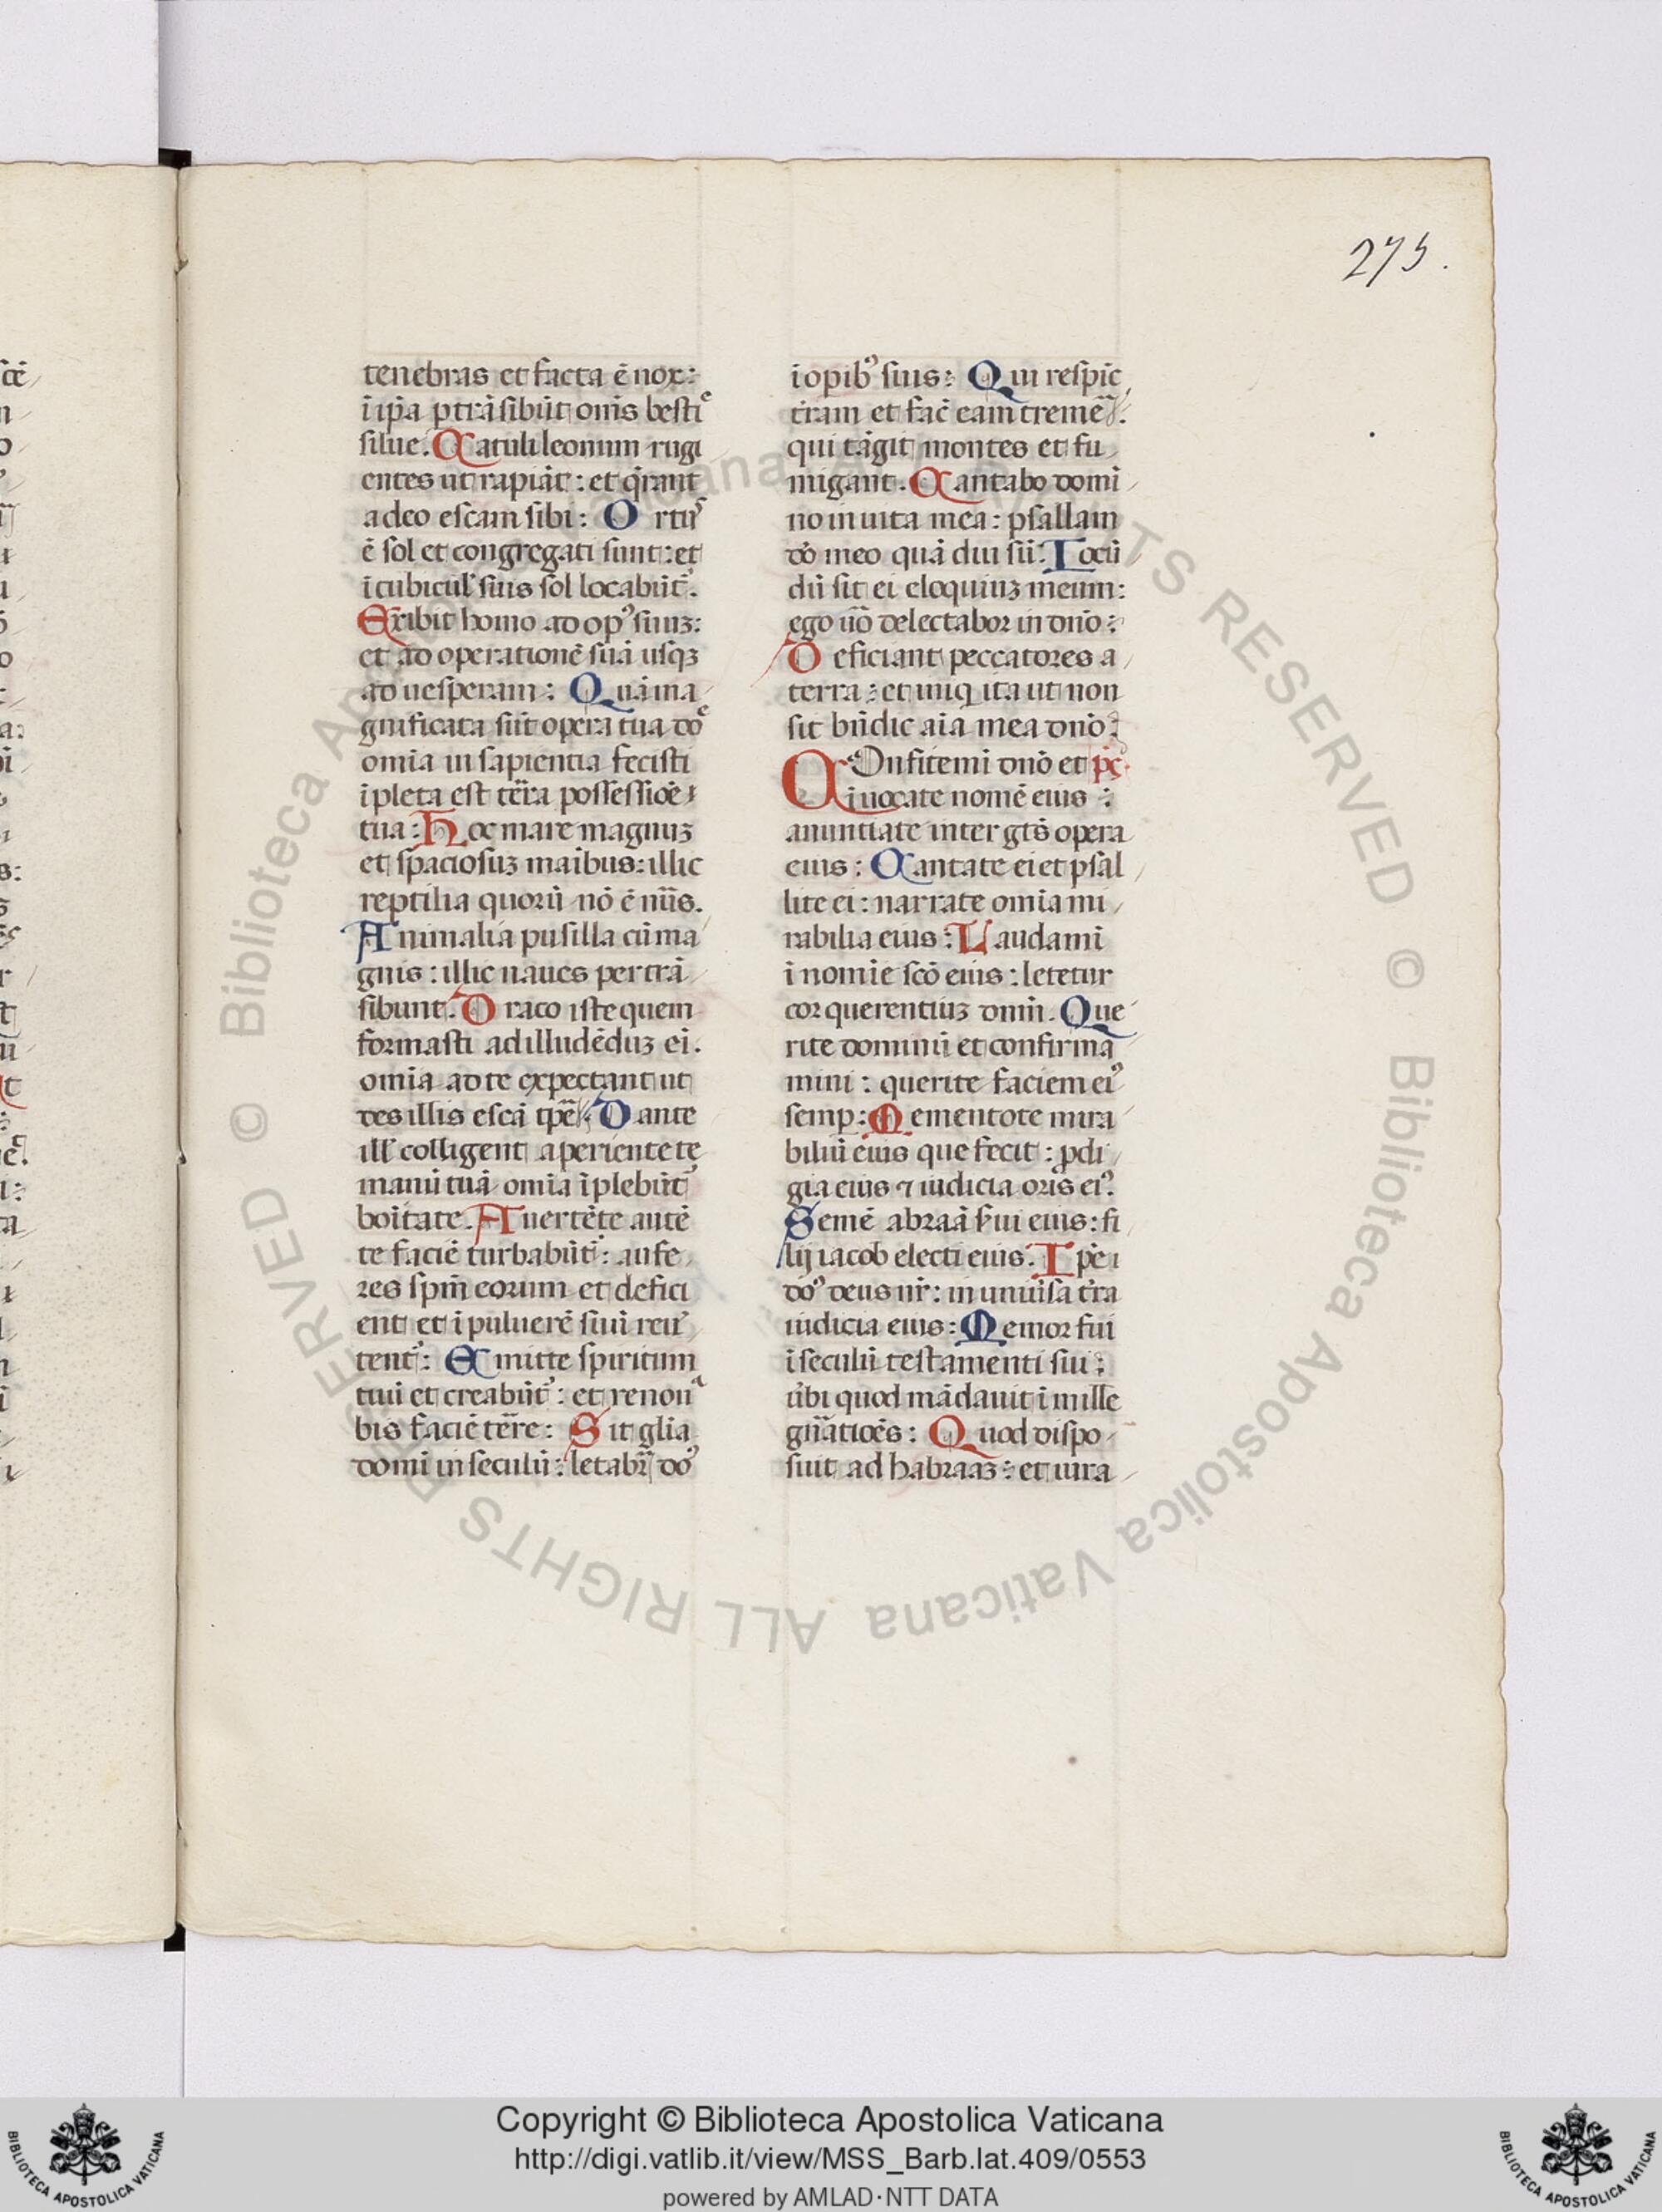 275.
tenebras et facta ē nox:
ī ip̄a ptrāsibūt om̄s besti^e
silue. Catuli leonum rugi
entes ut rapiāt: et q̄rant
a deo escam sibi: Ortu᾽
ē sol et congregati sunt: et
ī cubicul᾽ suis sol locabūt᾽.
Exibit homo ad op᾽ suuꝫ:
et ad operationē suā usqꝫ
ad uesperam: Quā ma
gnificata sūt opera tua do^e
omīa in sapientia fecisti
īpleta est tēra possessiōe
tua: Hoc mare magnuꝫ
et spaciosuꝫ maībus: illic
reptilia quorū nō ē nūs.
Animalia pusilla cū ma
gnis: illic naues pertrā
sibunt. Draco iste quem
formasti ad illudēduꝫ ei.
omīa ad te expectant ut
des illis escā tp̄e. Dante
ill᾽ colligent aperiente te
manū tuā omīa īplebūt᾽
boītate. Auertēte autē
te faciē turbabūt᾽: aufe
res sp̄m eorum et defici
ent et ī puluerē suū reu᾽
tent᾽: Emitte spiritum
tuū et creabūt᾽: et renou^a
bis faciē tēre: Sit gl̄ia
domī in seculū: letabr̄ do᾽
ī opib᾽ suis: Qui respic̄
t᾽ram et fac̄ eam tremē᾽.
qui tāgit montes et fu
migant. Cantabo domī
no in uita mea: psallam
dō meo quādiu sū: Iocū
dū sit ei eloquiuꝫ meum:
ego uō delectabor in dn̄o:
Deficiant peccatores a
terra: et iniq ita ut non
sit bn̄dic aīa mea dn̄o:
COnfitemī dn̄o et p̄c
īuocate nomē eius:
anuntiate inter gt̄s opera
eius: Cantate ei et psal
lite ei: narrate omīa mi
rabilia eius: Laudamī
ī nomīe sc̄o eius: letetur
cor querentiuꝫ dn̄m. Que
rite dominū et confirma
mini: querite faciem ei᾽
semp: Mementote mira
biliū eius que fecit: pdi
gia eius ⁊ iudicia oris ei᾽.
Semē abraā s᾽ui eius: fi
lij iacob electi eius. Ip̄e
do᾽ deus nr̄: in uniu᾽sa t᾽ra
iudicia eius: Memor fui
ī seculū testamenti sui:
u᾽bi quod mādauit ī mille
gn̄atiōes: Quod dispo
suit ad habraaꝫ: et iura
Copyright © Biblioteca Apostolica Vaticana
http://digi.vatlib.it/view/MSS_Barb.lat.409/0553
powered by AMLAD·NTT DATA